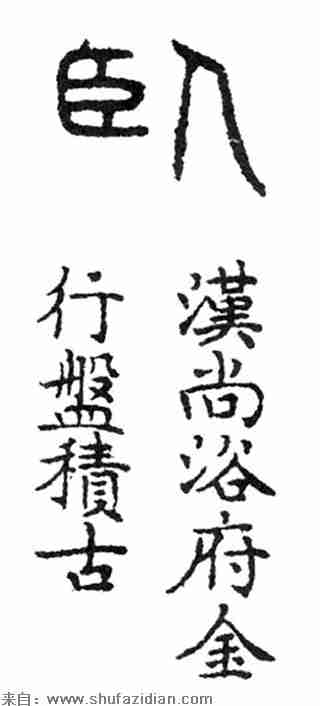 臥
漢尚浴府金
行盤積古
来自：www.shufazidian.com